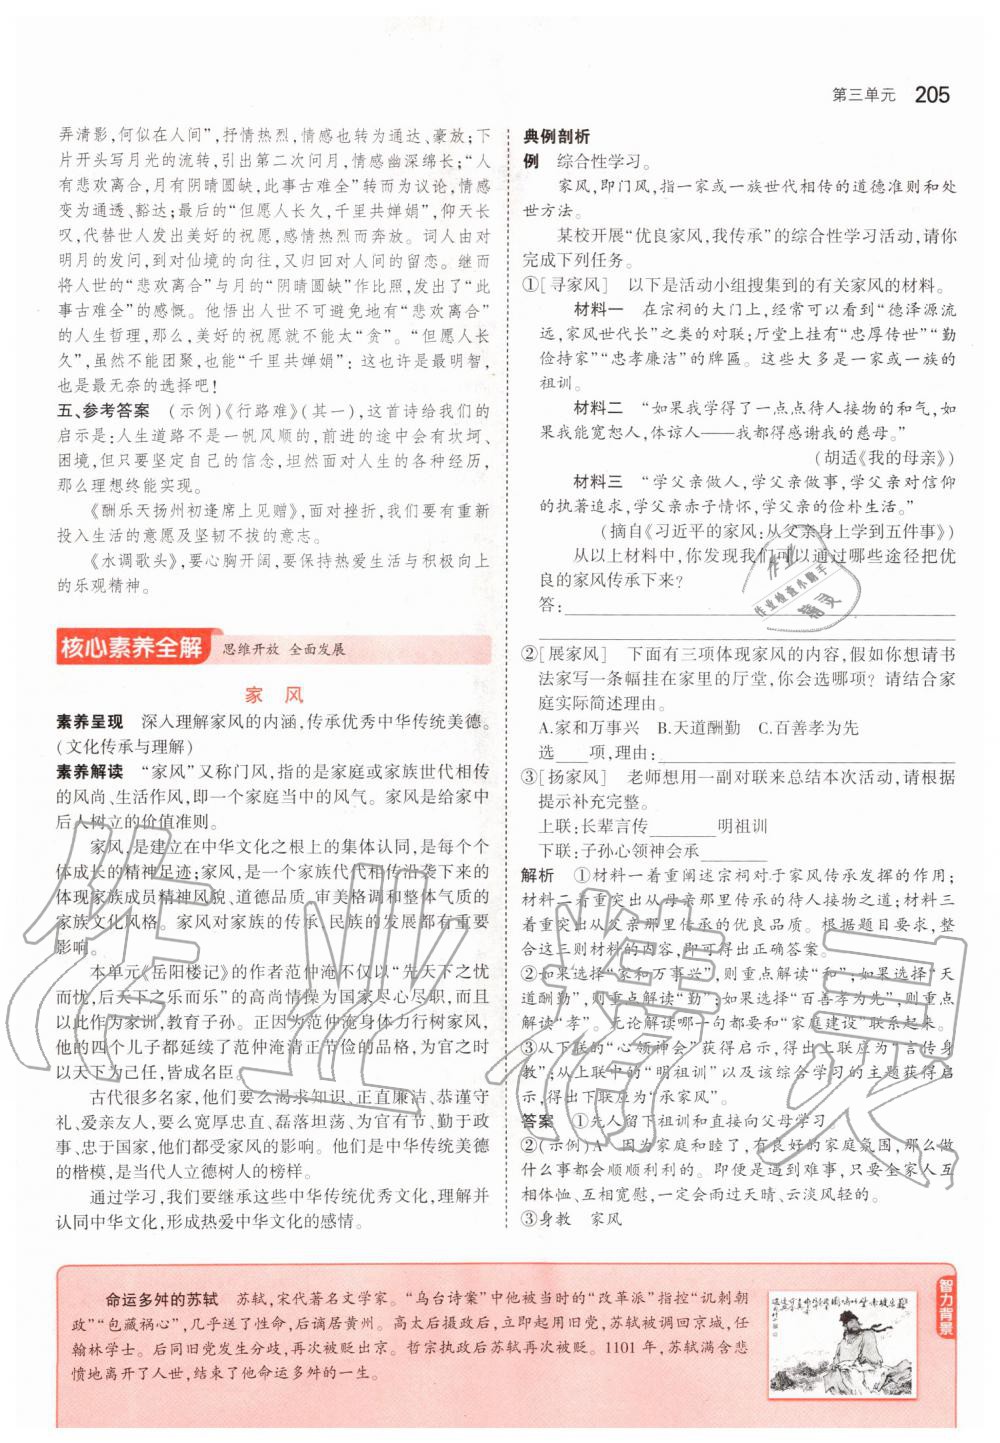 第三单元 205
弄清影,何似在人间”,抒情热烈,情感也转为通达、豪放;下
片开头写月光的流转,引出第二次问月,情感幽深绵长;“人
有悲欢离合,月有阴晴圆缺,此事古难全”转而为议论,情感
变为通透、豁达;最后的“但愿人长久,千里共婵娟”,仰天长
叹,代替世人发出美好的祝愿,感情热烈而奔放。词人由对
明月的发问,到对仙境的向往,又归回对人间的留恋。继而
将人世的“悲欢离合”与月的“阴晴圆缺”作比照,发出了“此
事古难全”的感慨。他悟出人世不可避免地有“悲欢离合”
的人生哲理,那么,美好的祝愿就不能太“贪”。“但愿人长
久”,虽然不能团聚,也能“千里共婵娟”:这也许是最明智,
也是最无奈的选择吧!
五、参考答案 (示例)《行路难》(其一),这首诗给我们的
启示是:人生道路不是一帆风顺的,前进的途中会有坎坷、
困境,但只要坚定自己的信念,坦然面对人生的各种经历,
那么理想终能实现。
《酬乐天扬州初逢席上见赠》,面对挫折,我们要有重新
投入生活的意愿及坚韧不拔的意志。
《水调歌头》,要心胸开阔,要保持热爱生活与积极向上
的乐观精神。
核心素养全解 思维开放 全面发展
家 风
素养呈现 深入理解家风的内涵,传承优秀中华传统美德。
(文化传承与理解)
素养解读 “家风”又称门风,指的是家庭或家族世代相传
的风尚、生活作风,即一个家庭当中的风气。家风是给家中
后人树立的价值准则。
家风,是建立在中华文化之根上的集体认同,是每个个
体成长的精神足迹;家风,是一个家族代代相传沿袭下来的
体现家族成员精神风貌、道德品质、审美格调和整体气质的
家族文化风格。家风对家族的传承、民族的发展都有重要
影响。
本单元《岳阳楼记》的作者范仲淹不仅以“先天下之忧
而忧,后天下之乐而乐”的高尚情操为国家尽心尽职,而且
以此作为家训,教育子孙。正因为范仲淹身体力行树家风,
他的四个儿子都延续了范仲淹清正节俭的品格,为官之时
以天下为己任,皆成名臣。
古代很多名家,他们要么渴求知识、正直廉洁、恭谨守
礼、爱亲友人,要么宽厚忠直、磊落坦荡、为官有节、勤于政
事、忠于国家,他们都受家风的影响。他们是中华传统美德
的楷模,是当代人立德树人的榜样。
通过学习,我们要继承这些中华传统优秀文化,理解并
认同中华文化,形成热爱中华文化的感情。
典例剖析
例 综合性学习。
家风,即门风,指一家或一族世代相传的道德准则和处
世方法。
某校开展“优良家风,我传承”的综合性学习活动,请你
完成下列任务。
①[寻家风] 以下是活动小组搜集到的有关家风的材料。
材料一 在宗祠的大门上,经常可以看到“德泽源流
远,家风世代长”之类的对联;厅堂上挂有“忠厚传世”“勤
俭持家”“忠孝廉洁”的牌匾。这些大多是一家或一族的
祖训。
材料二 “如果我学得了一点点待人接物的和气,如
果我能宽恕人,体谅人——我都得感谢我的慈母。”
(胡适《我的母亲》)
材料三 “学父亲做人,学父亲做事,学父亲对信仰
的执著追求,学父亲赤子情怀,学父亲的俭朴生活。”
(摘自《习近平的家风:从父亲身上学到五件事》)
从以上材料中,你发现我们可以通过哪些途径把优
良的家风传承下来?
答:
②[展家风] 下面有三项体现家风的内容,假如你想请书
法家写一条幅挂在家里的厅堂,你会选哪项?请结合家
庭实际简述理由。
A.家和万事兴 B.天道酬勤 C.百善孝为先
选____项,理由:
③[扬家风] 老师想用一副对联来总结本次活动,请根据
提示补充完整。
上联:长辈言传________明祖训
下联:子孙心领神会承________
解析 ①材料一着重阐述宗祠对于家风传承发挥的作用;
材料二着重突出从母亲那里传承的待人接物之道;材料三
着重突出从父亲那里传承的优良品质。根据题目要求,整
合这三则材料的内容,即可得出正确答案。
②如果选择“家和万事兴”,则重点解读“和”;如果选择“天
道酬勤”,则重点解读“勤”;如果选择“百善孝为先”,则重点
解读“孝”。无论解读哪一句都要和“家庭建设”联系起来。
③从下联的“心领神会”获得启示,得出上联应为“言传身
教”;从上联的“明祖训”以及该综合学习的主题获得启
示,得出下联应为“承家风”。
答案 ①先人留下祖训和直接向父母学习。
②(示例)A 因为家庭和睦了,有良好的家庭氛围,那么做
什么事都会顺顺利利的。即便是遇到难事,只要全家人互
相体恤、互相宽慰,一定会雨过天晴、云淡风轻的。
③身教 家风
命运多舛的苏轼 苏轼,宋代著名文学家。“乌台诗案”中他被当时的“改革派”指控“讥刺朝
政”“包藏祸心”,几乎送了性命,后谪居黄州。高太后摄政后,立即起用旧党,苏轼被调回京城,任
翰林学士。后同旧党发生分歧,再次被贬出京。哲宗执政后苏轼再次被贬。1101年,苏轼满含悲
愤地离开了人世,结束了他命运多舛的一生。
智力背景
作业
作业检查小助手
精灵
作业精灵